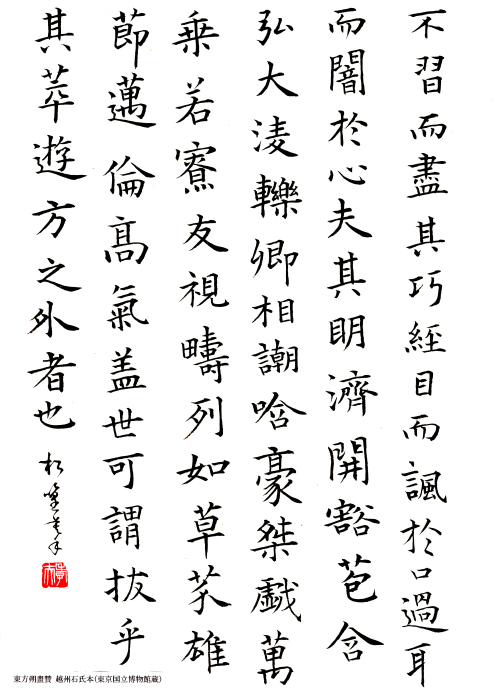 不習而盡其巧經目而諷於口過耳
而闇於心夫其眀濟開豁苞含
弘大淩轢卿相謿唅豪桀戯萬
乗若寮友視疇列如草芥雄
節邁倫髙氣盖世可謂拔乎
其萃遊方之外者也
東方朔畫賛 越州石氏本(東京国立博物館蔵)